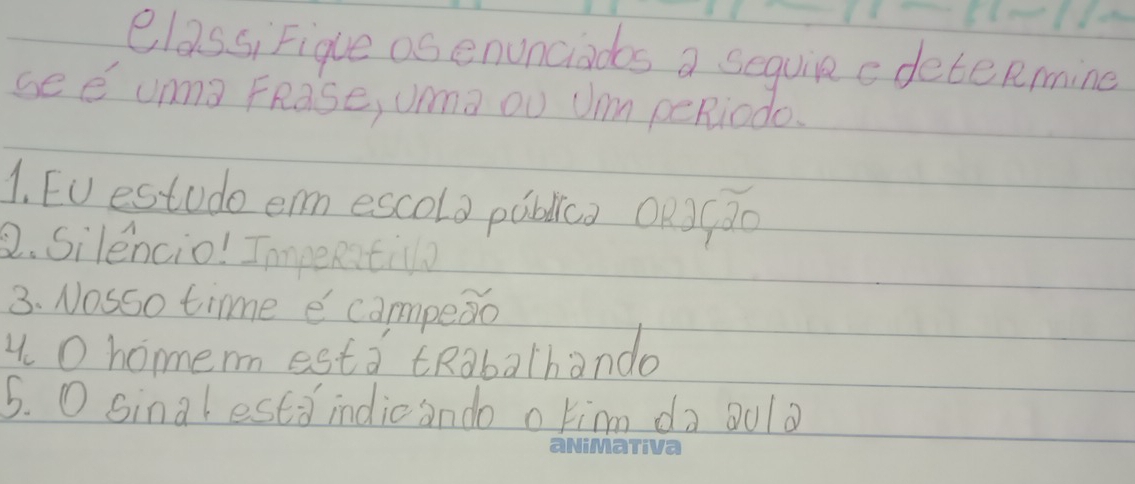 Classifique os enunciados a seguir e determine
se é uma frase, uma ou um periodo.
1. Eu estudo em escola pública oração
2. Silêncio! Imperativa
3. Nosso time é campeão
4. O homem está trabalhando
5. O sinal está indicando o fim da aula
aNiMaTiva